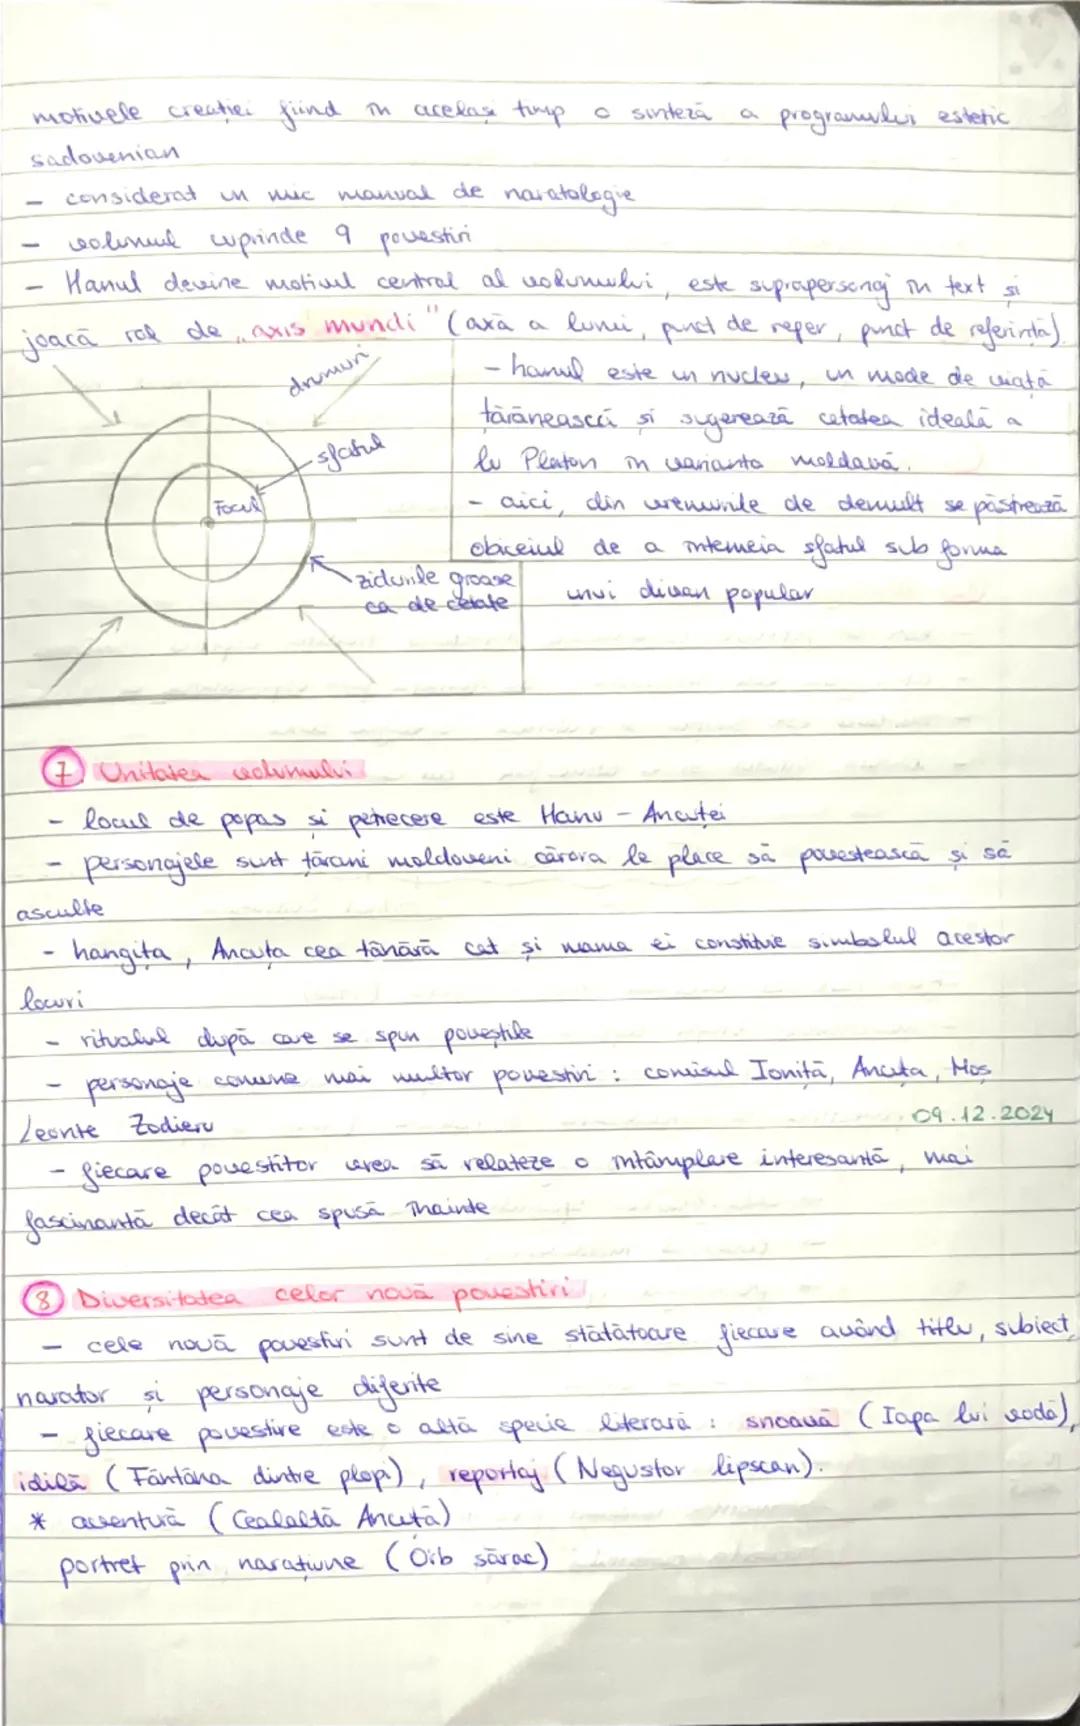 motivele creației fiind în același timp o sinteză a programului estetic
sadovenian
- considerat un mic manual de naratologie
- volumul cuprinde 9 povestiri
- Hanul devine motivul central al volumului, este suprapersonaj în text și
joacă rol de „axis mundi" (axă a lumii, punct de reper, punct de referință).
drumuri
sfatul
Focul
zidurile groase
ca de cetate
- hanul este un nucleu, un mode de viață
țărănească și sugerează cetatea ideală a
lu Platon în varianta moldavă.
- aici, din vremurile de demult se păstrează
obiceiul de a întemeia sfatul sub forma
unui divan popular
7. Unitatea volumului
- locul de popas și petrecere este Hanu - Ancuței
- personajele sunt țărani moldoveni cărora le place să povestească și să
asculte
- hangița, Ancuța cea tânără cat și mama ei constituie simbolul acestor
locuri
- ritualul după care se spun poveștile
- personaje comune mai multor povestiri : comisul Ioniță, Ancuța, Moș
Leonte Zodieru
09.12.2024
- fiecare povestitor vrea să relateze o întâmplare interesantă, mai
fascinantă decât cea spusă înainte
8 Diversitatea celor nouă povestiri
- cele nouă povestiri sunt de sine stătătoare fiecare având titlu, subiect,
narator și personaje diferite
- fiecare povestire este o altă specie literară : snoavă (Iapa lui vodă),
idilă (Fântâna dintre plopi), reportaj (Negustor lipscan).
* aventură (Cealaltă Ancuță)
portret prin narațiune (Orb sărac)